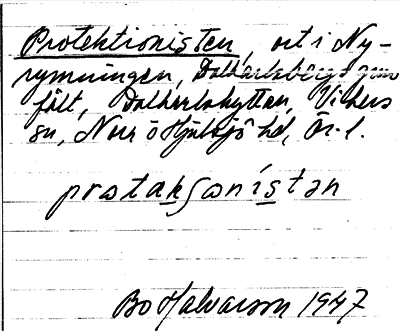 Protektionisten, ort i Ny-
rymningen, Dalkarlsbergs gruv
fält, Dalkarlshyttan, Vikers
sn, Nora o Hjulsjö hd, Ör. l.
protakʃonistan
Bo Halvarson 1947